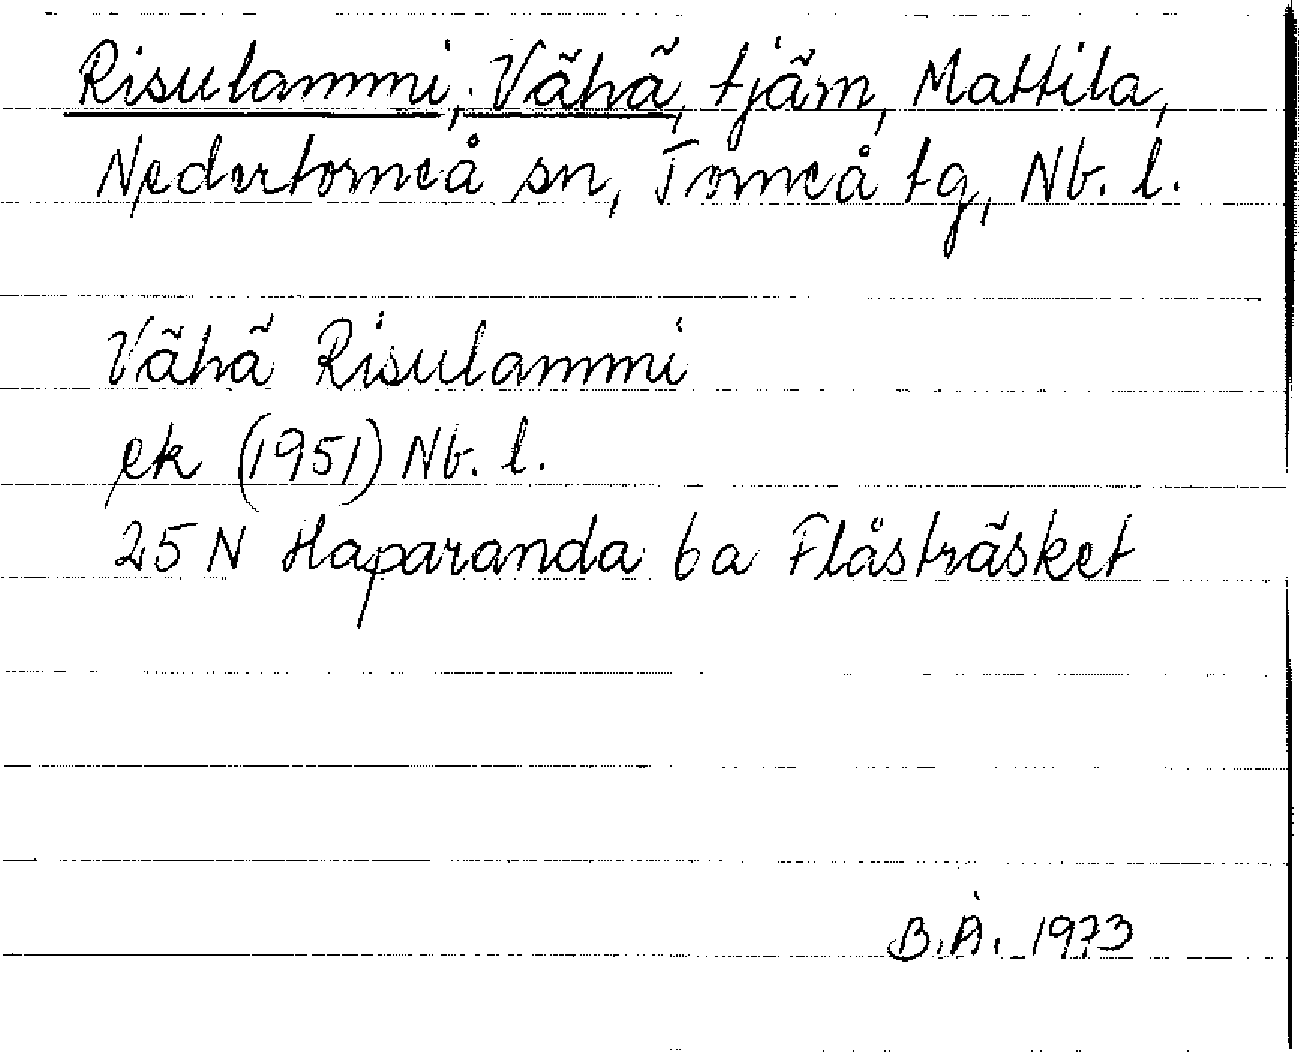 Risulammi, Vähä, tjäm, Mattila,
Nedertorneå sn, Torneå tg, Nb. l.
Vähä Risulammi
ek (1951) Nb. l.
25 N Haparanda 6 a Flåsträsket
B.Å. 1973